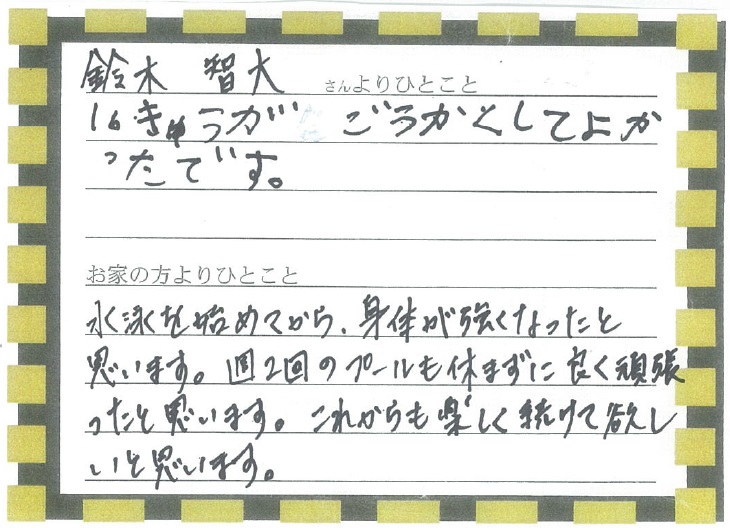 鈴木 智大 さんよりひとこと
16きゅうが ごうかくしてよか
ったです。
お家の方よりひとこと
水泳を始めてから、身体が強くなったと
思います。週2回のプールも休まずに良く頑張
ったと思います。これからも楽しく続けて欲し
いと思います。